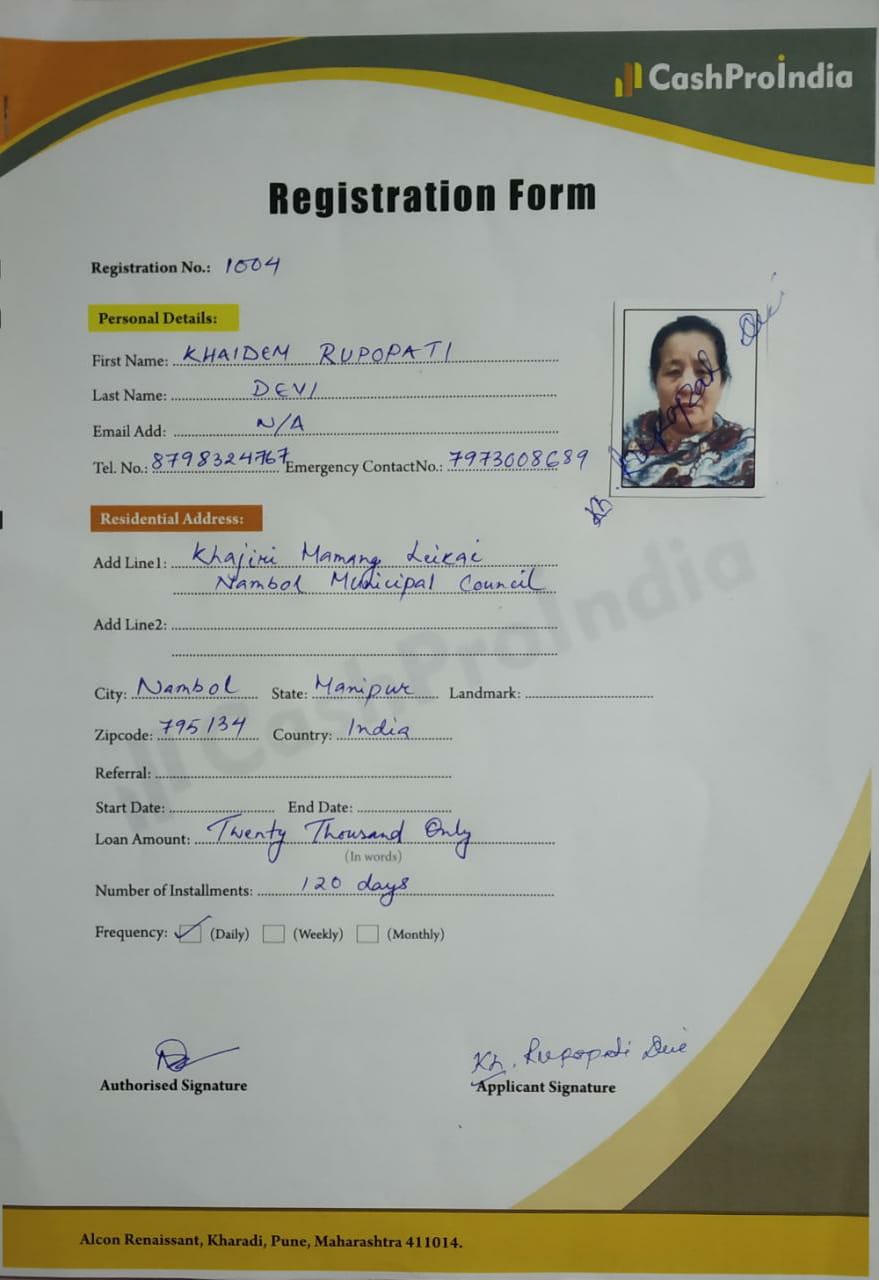 CashProIndia
Registration Form
Registration No.: 1004
Personal Details:
First Name: KHAIDEM RUPOPATI
Last Name: DEVI
Email Add: N/A
Tel. No.: 8798324767 Emergency ContactNo.: 7973008689
Kh. Rupopati Devi
Residential Address:
Add Line1: Khajiri Mamang Leikai
Nambol Municipal Council
Add Line2:
City: Nambol State: Manipur Landmark:
Zipcode: 795134 Country: India
Referral:
Start Date: End Date:
Loan Amount: Twenty Thousand Only
(In words)
Number of Installments: 120 days
Frequency: (Daily) (Weekly) (Monthly)
Kh. Rupopati Devi
Authorised Signature Applicant Signature
CashProIndia
Alcon Renaissant, Kharadi, Pune, Maharashtra 411014.